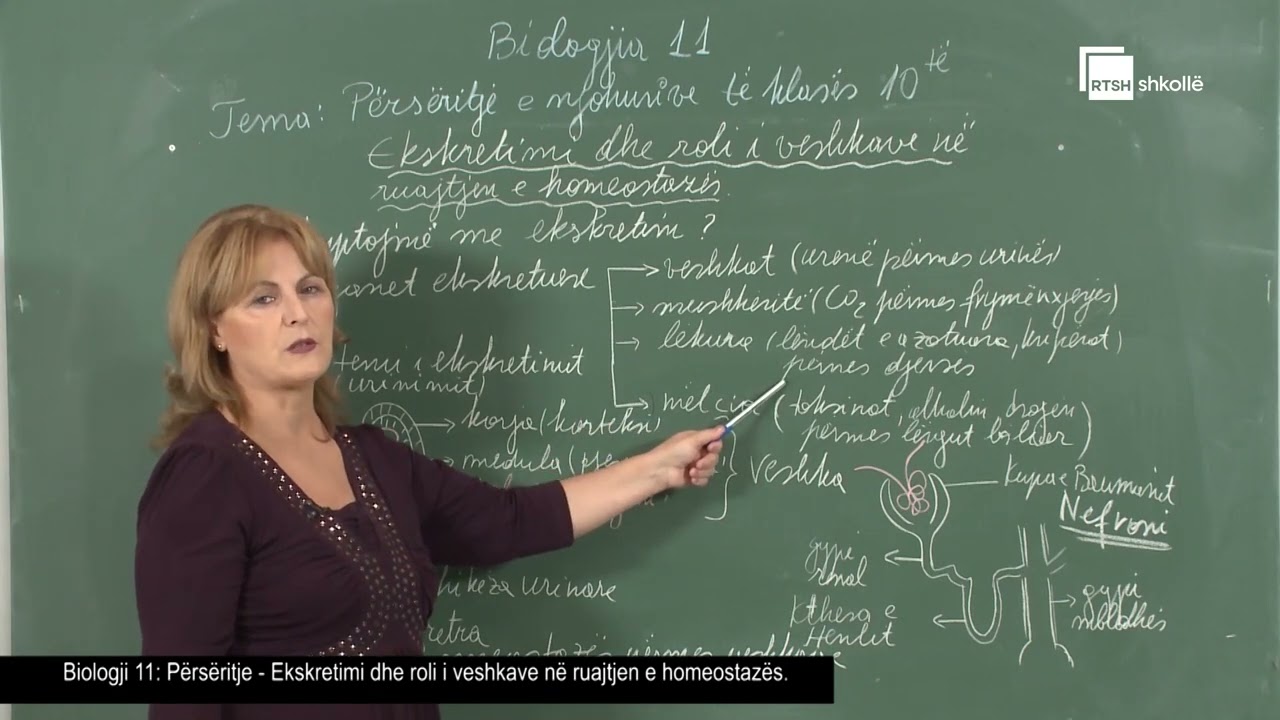 Biologjia 11
Tema: Përsëritje e njohurive të klasës 10 të
Ekskretimi dhe roli i veshkave në
ruajtjen e homeostazës.
me ekskretim?
ekskretuese
veshkat (urenë përmes urinës)
mushkëritë (CO₂ përmes frymënxjerjes)
lëkura (lëndët e azotuara, kripërat)
përmes djersës
i ekskretimit
(urinimit)
mëlçia (toksinat, alkolin, drogën
përmes lëngut biliar)
korja (korteksi)
medula
Veshka
Kupa e Baumanit
Nefroni
gypi
renal
Kthesa e
Henlit
gypi
mbledhës
urinare
homeostazës përmes veshkave
RTSH shkollë
Biologji 11: Përsëritje - Ekskretimi dhe roli i veshkave në ruajtjen e homeostazës.